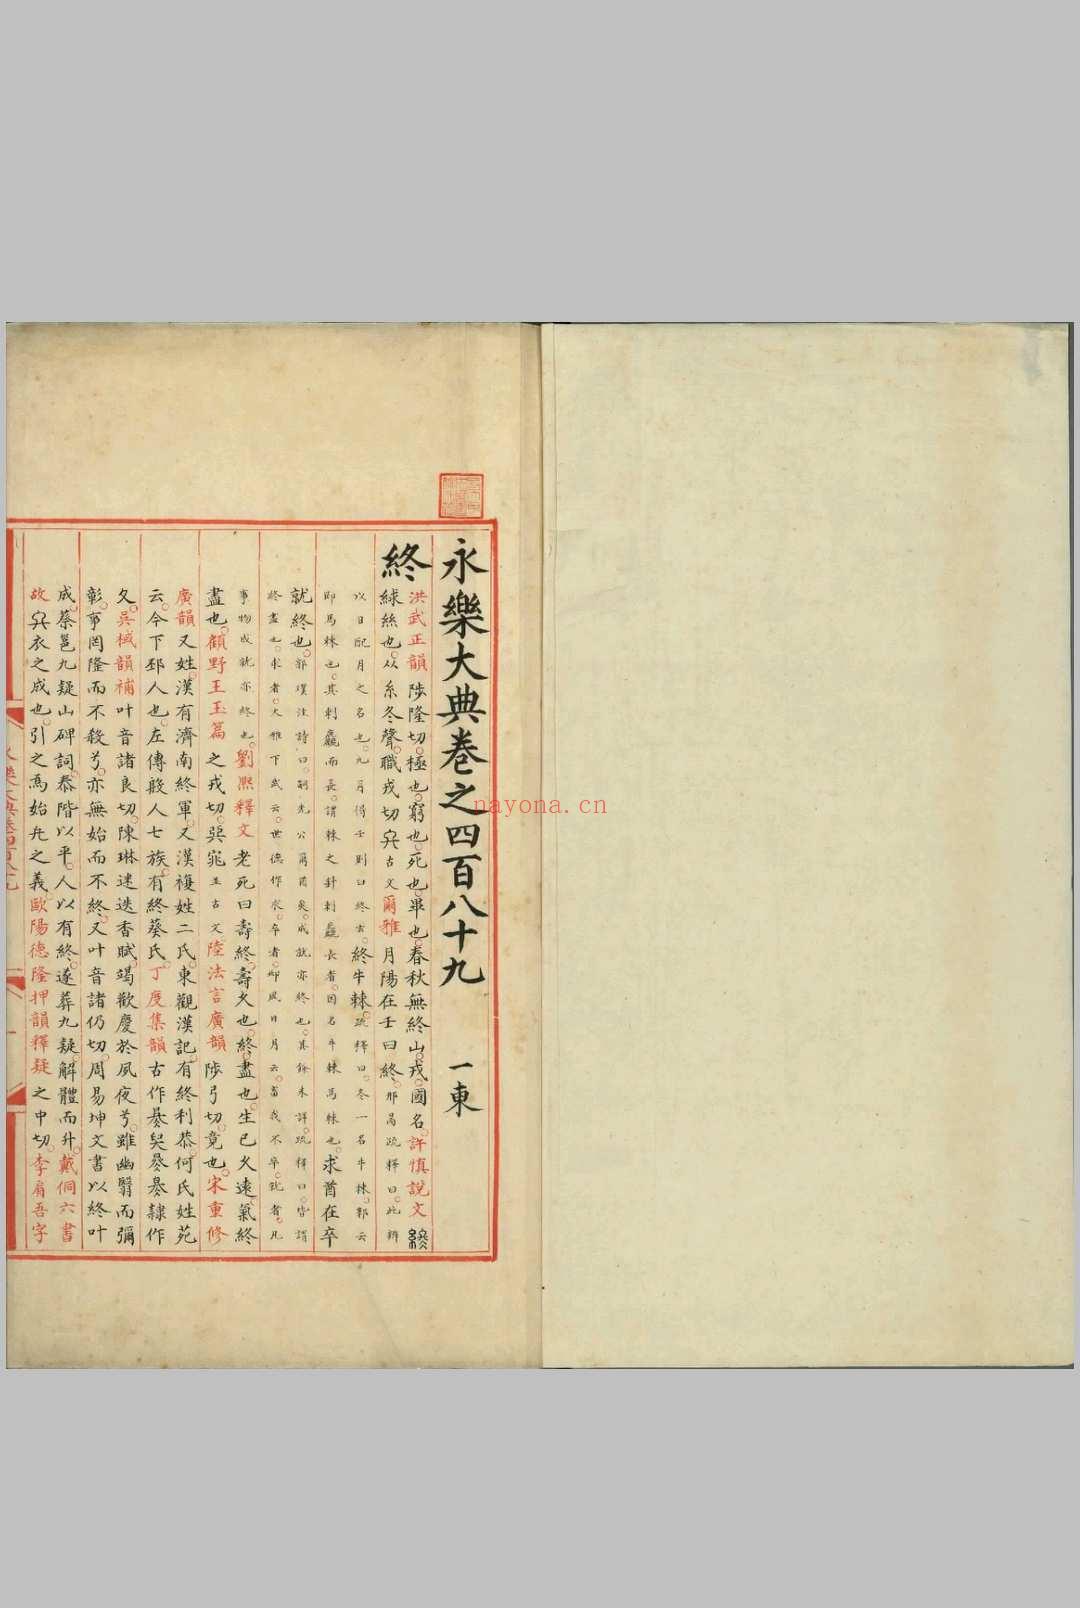 永樂大典卷之四百八十九 一東
終
洪武正韻陟隆切極也窮也死也畢也春秋無終山戎國名許慎說文
絿絲也从糸冬聲職戎切㒶古文爾雅月陽在壬曰終邢昺疏釋曰此辨
以日配月之名也九月得壬則曰終玄終牛棘疏釋曰終一名牛棘郭云
即馬棘也其刺麤而長謂棘之針刺麤長者因名牛棘馬棘也求酋在卒
就終也郭璞注詩曰嗣先公爾酋矣成就亦終也其餘未詳疏釋曰皆謂
終盡也求者大雅下武云世德作求卒者邶風日月云畜我不卒就者凡
事物成就亦終也劉熙釋文老死曰壽終壽久也終盡也生已久遠氣終
盡也顧野王玉篇之戎切並古文陸法言廣韻陟弓切竟也宋重修
廣韻又姓漢有濟南終軍又漢複姓二氏東觀漢記有終利恭何氏姓苑
云今下邳人也左傳殷人七族有終葵氏丁度集韻古作隸作
夂吳棫韻補叶音諸良切陳琳迷迭香賦竭歡慶於夙夜兮雖幽翳而彌
彰事罔隆而不殺兮亦無始而不終又叶音諸仍切周易坤文書以終叶
成蔡邕九疑山碑詞泰階以平人以有終遂葬九疑解體而升戴侗六書
故㒶衣之成也引之爲始夂之義歐陽德隆押韻釋疑之中切李肩吾字
永樂大典卷四百八十九
nayona.cn